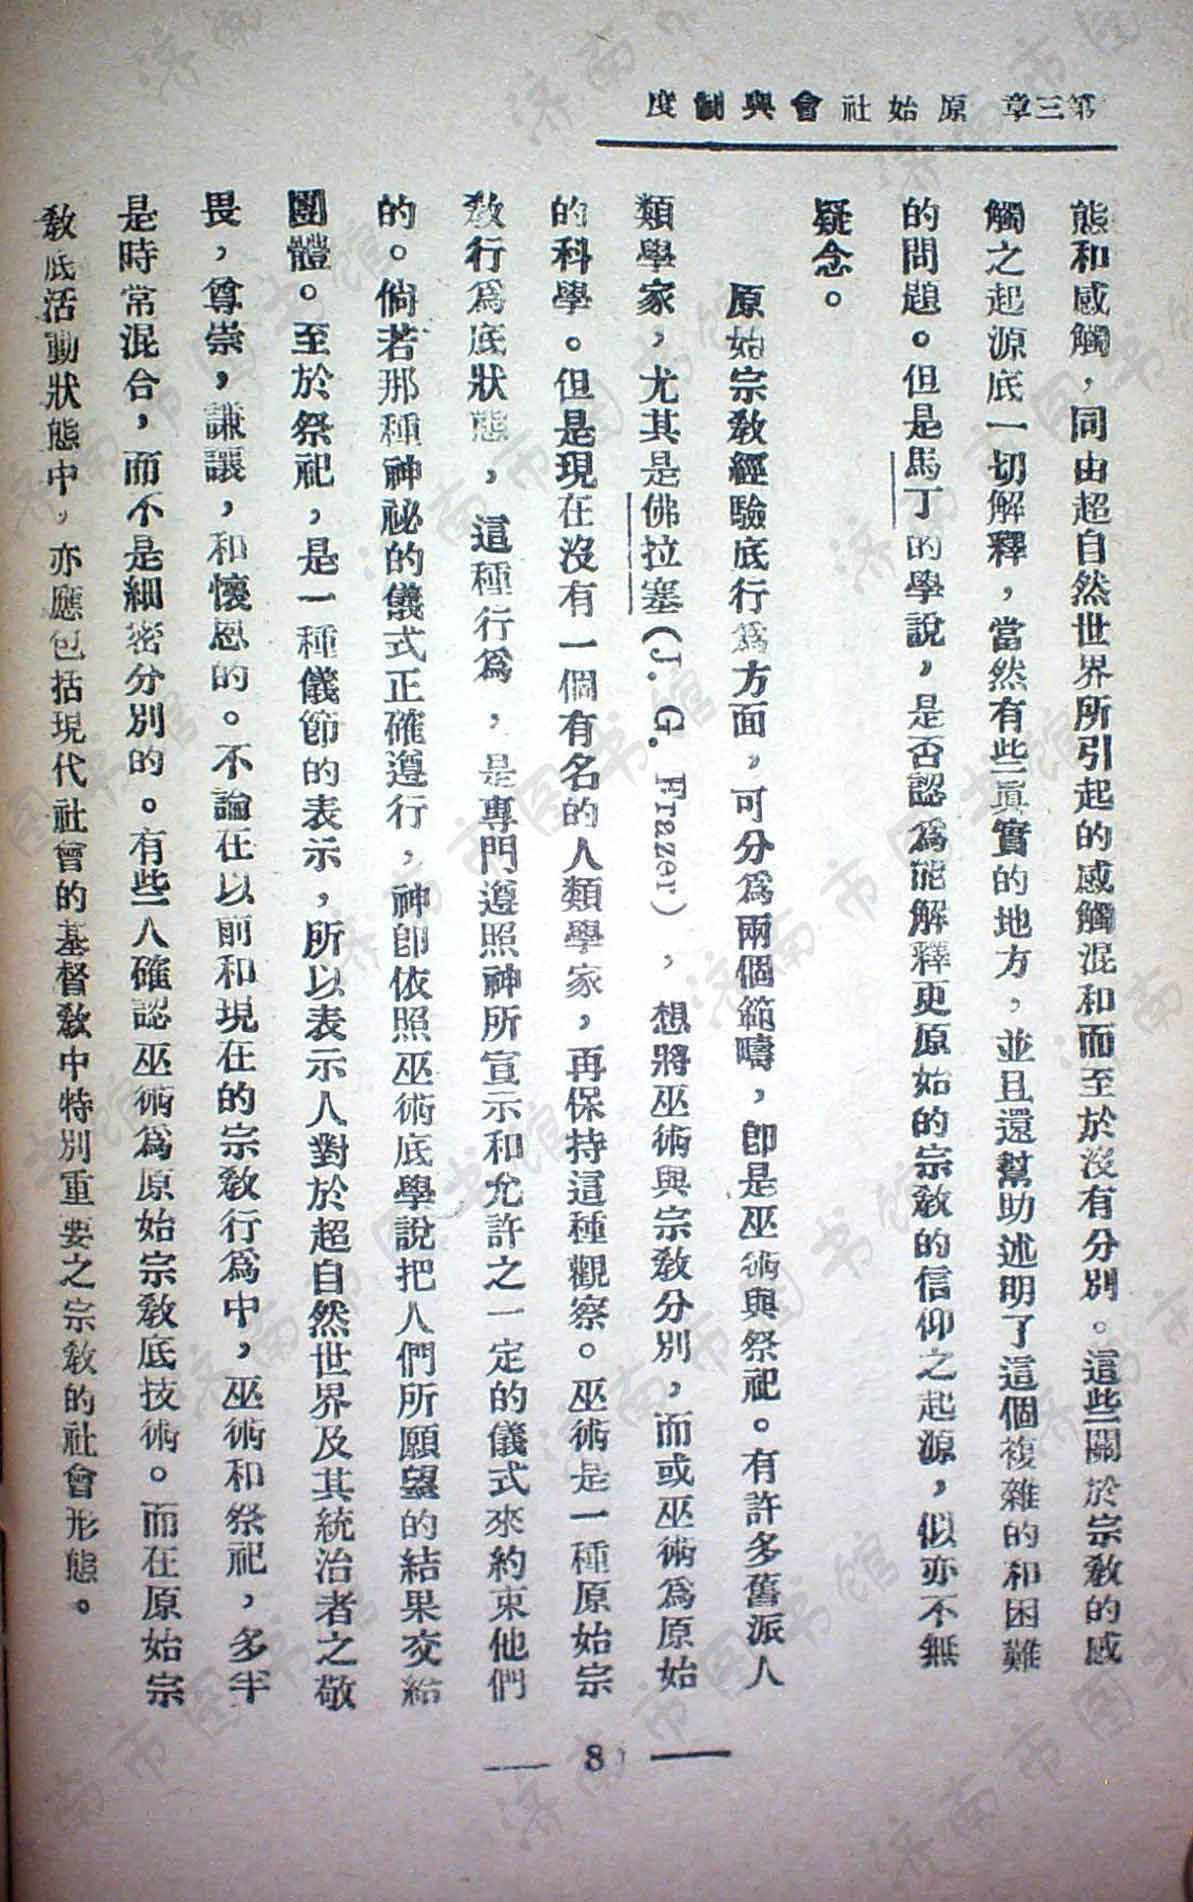 第三章 原始社會與制度
態和感觸，同由超自然世界所引起的感觸混和而至於沒有分別。這些關於宗教的感
觸之起源底一切解釋，當然有些眞實的地方，並且還幫助述明了這個複雜的和困難
的問題。但是馬丁的學說，是否認為能解釋更原始的宗教的信仰之起源，似亦不無
疑念。
原始宗教經驗底行爲方面，可分爲兩個範疇，卽是巫術與祭祀。有許多舊派人
類學家，尤其是佛拉塞（J. G. Frazer），想將巫術與宗教分別，而或巫術爲原始
的科學。但是現在沒有一個有名的人類學家，再保持這種觀察。巫術是一種原始宗
教行爲底狀態，這種行爲，是專門遵照神所宣示和允許之一定的儀式來約束他們
的。倘若那種神祕的儀式正確遵行，神卽依照巫術底學說把人們所願望的結果交給
團體。至於祭祀，是一種儀節的表示，所以表示人對於超自然世界及其統治者之敬
畏，尊崇，謙讓，和懷恩的。不論在以前和現在的宗教行爲中，巫術和祭祀，多半
是時常混合，而不是細密分別的。有些人確認巫術爲原始宗教底技術。而在原始宗
教底活動狀態中，亦應包括現代社會的基督教中特別重要之宗教的社會形態。
— 8 —
济南市图书馆